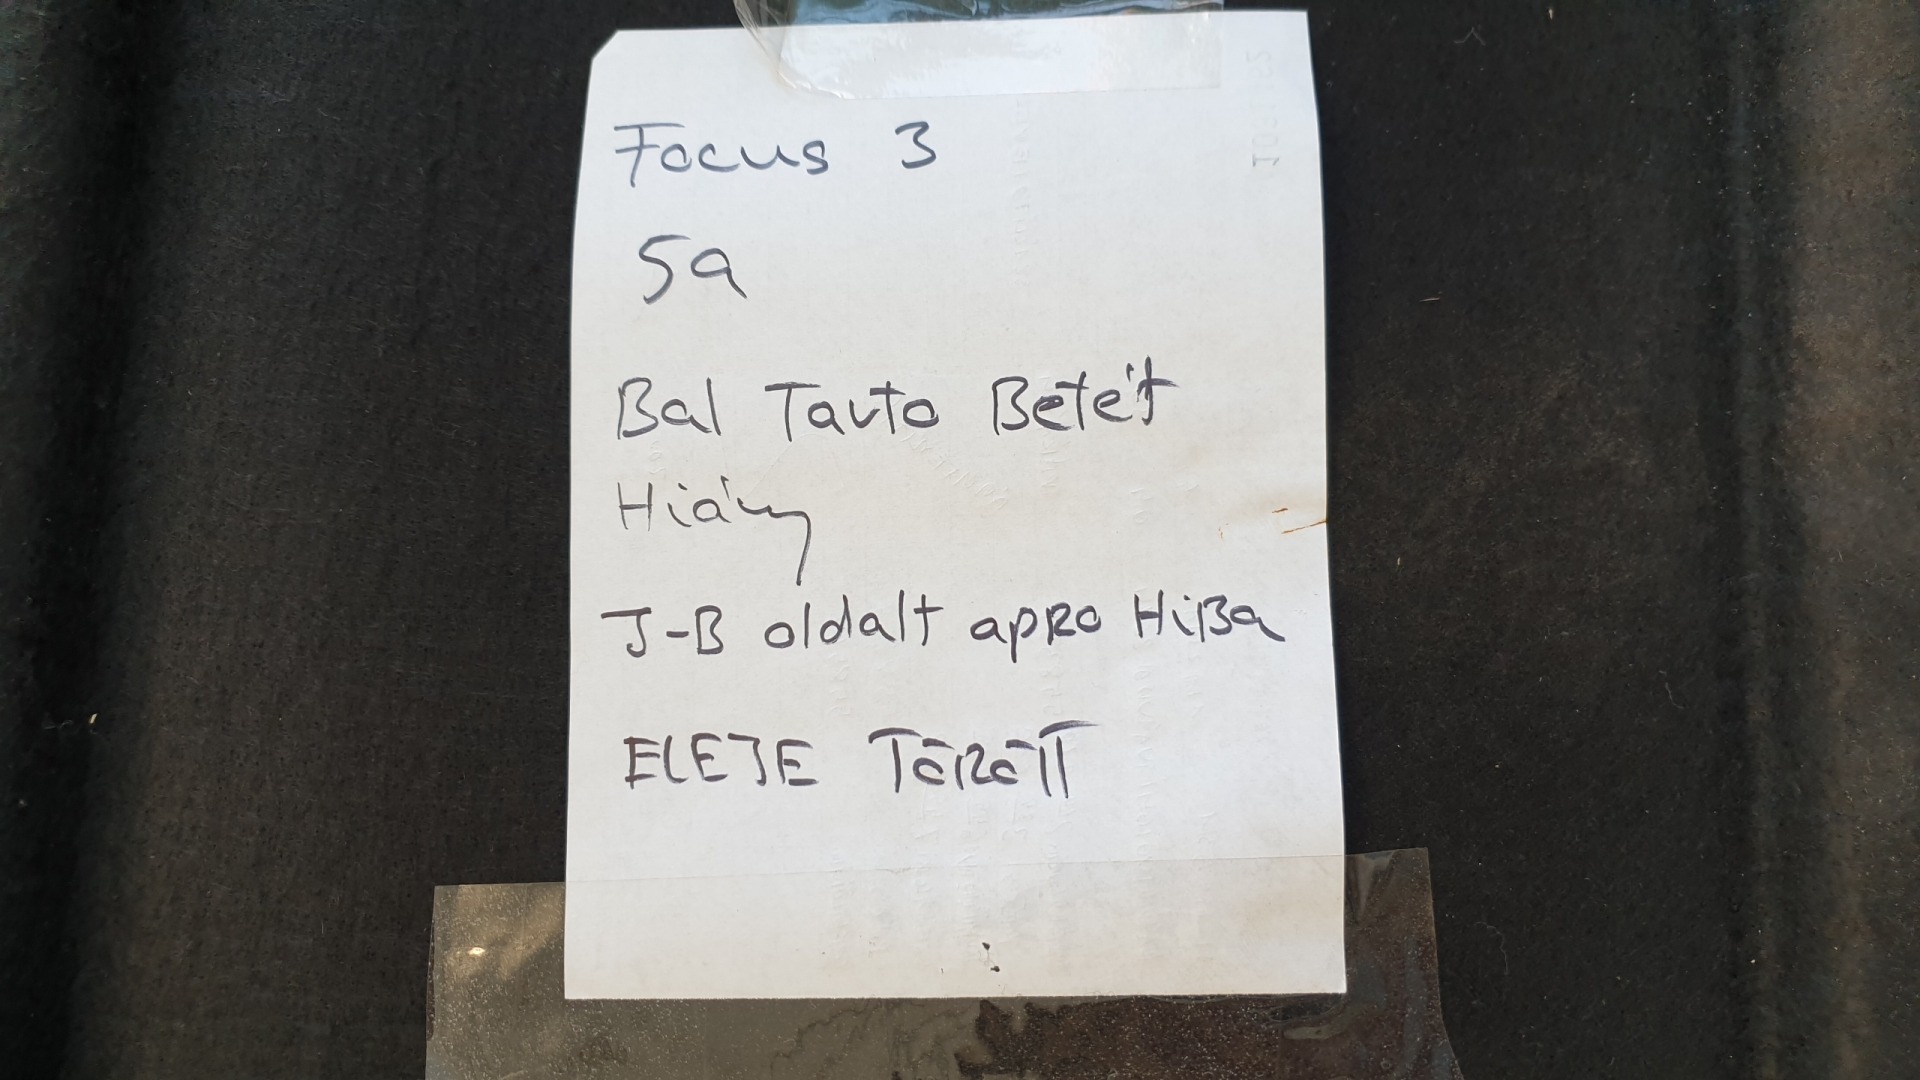 Focus 3
5a
Bal Tavto Betét
Hiány
J-B oldalt apro HiBa
ELEJE TÖRÖTT